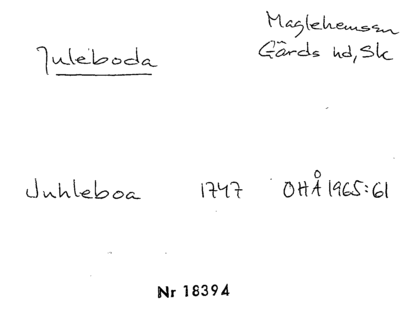 Maglehems sn
Juleboda Gärds hd, Sk
Juhleboa 1747 OHÅ 1965:61
Nr 18394